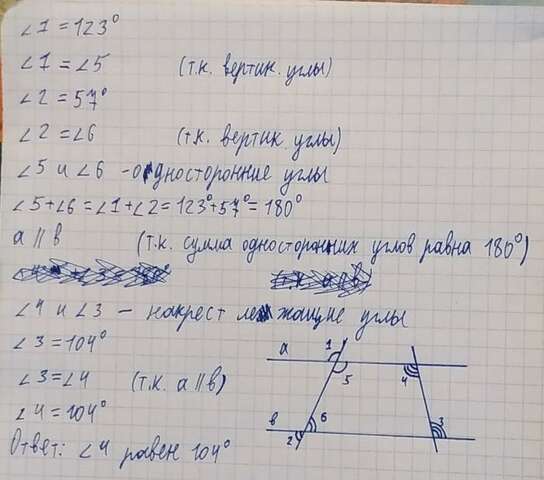 ∠1 = 123°
∠1 = ∠5 (т.к. вертик. углы)
∠2 = 57°
∠2 = ∠6 (т.к. вертик. углы)
∠5 и ∠6 - односторонние углы
∠5+∠6 = ∠1+∠2 = 123°+57° = 180°
a || b (т.к. сумма односторонних углов равна 180°)
∠4 и ∠3 – накрест лежащие углы
∠3 = 104°
∠3 = ∠4 (т.к. a || b)
∠4 = 104°
Ответ: ∠4 равен 104°
a 1 5 4
b 2 6 3